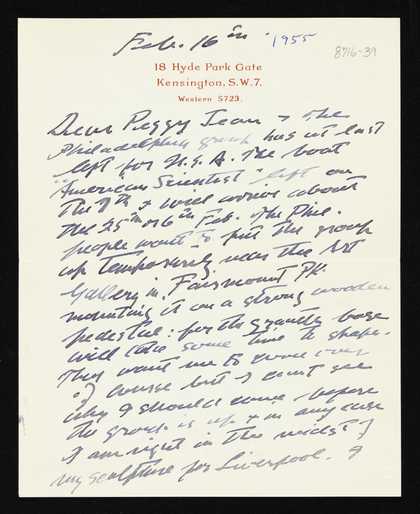 Feb. 16th 1955
8716-39
18 Hyde Park Gate
Kensington, S.W.7.
Western 5723.
Dear Peggy Jean - The
Philadelphia group has at last
left for U.S.A. The boat
"American Scientist" left on
the & will arrive about
the 25th or 26 Feb. The Phil.
people want to put the group
up temporarily near the Art
Gallery in Fairmount Pk.
mounting it on a strong wooden
pedestal: for the granite base
will take some time to shape.
They want me to come over
of course but I can't see
why I should come before
the group is up & in any case
I am right in the midst of
my sculpture for Liverpool. I